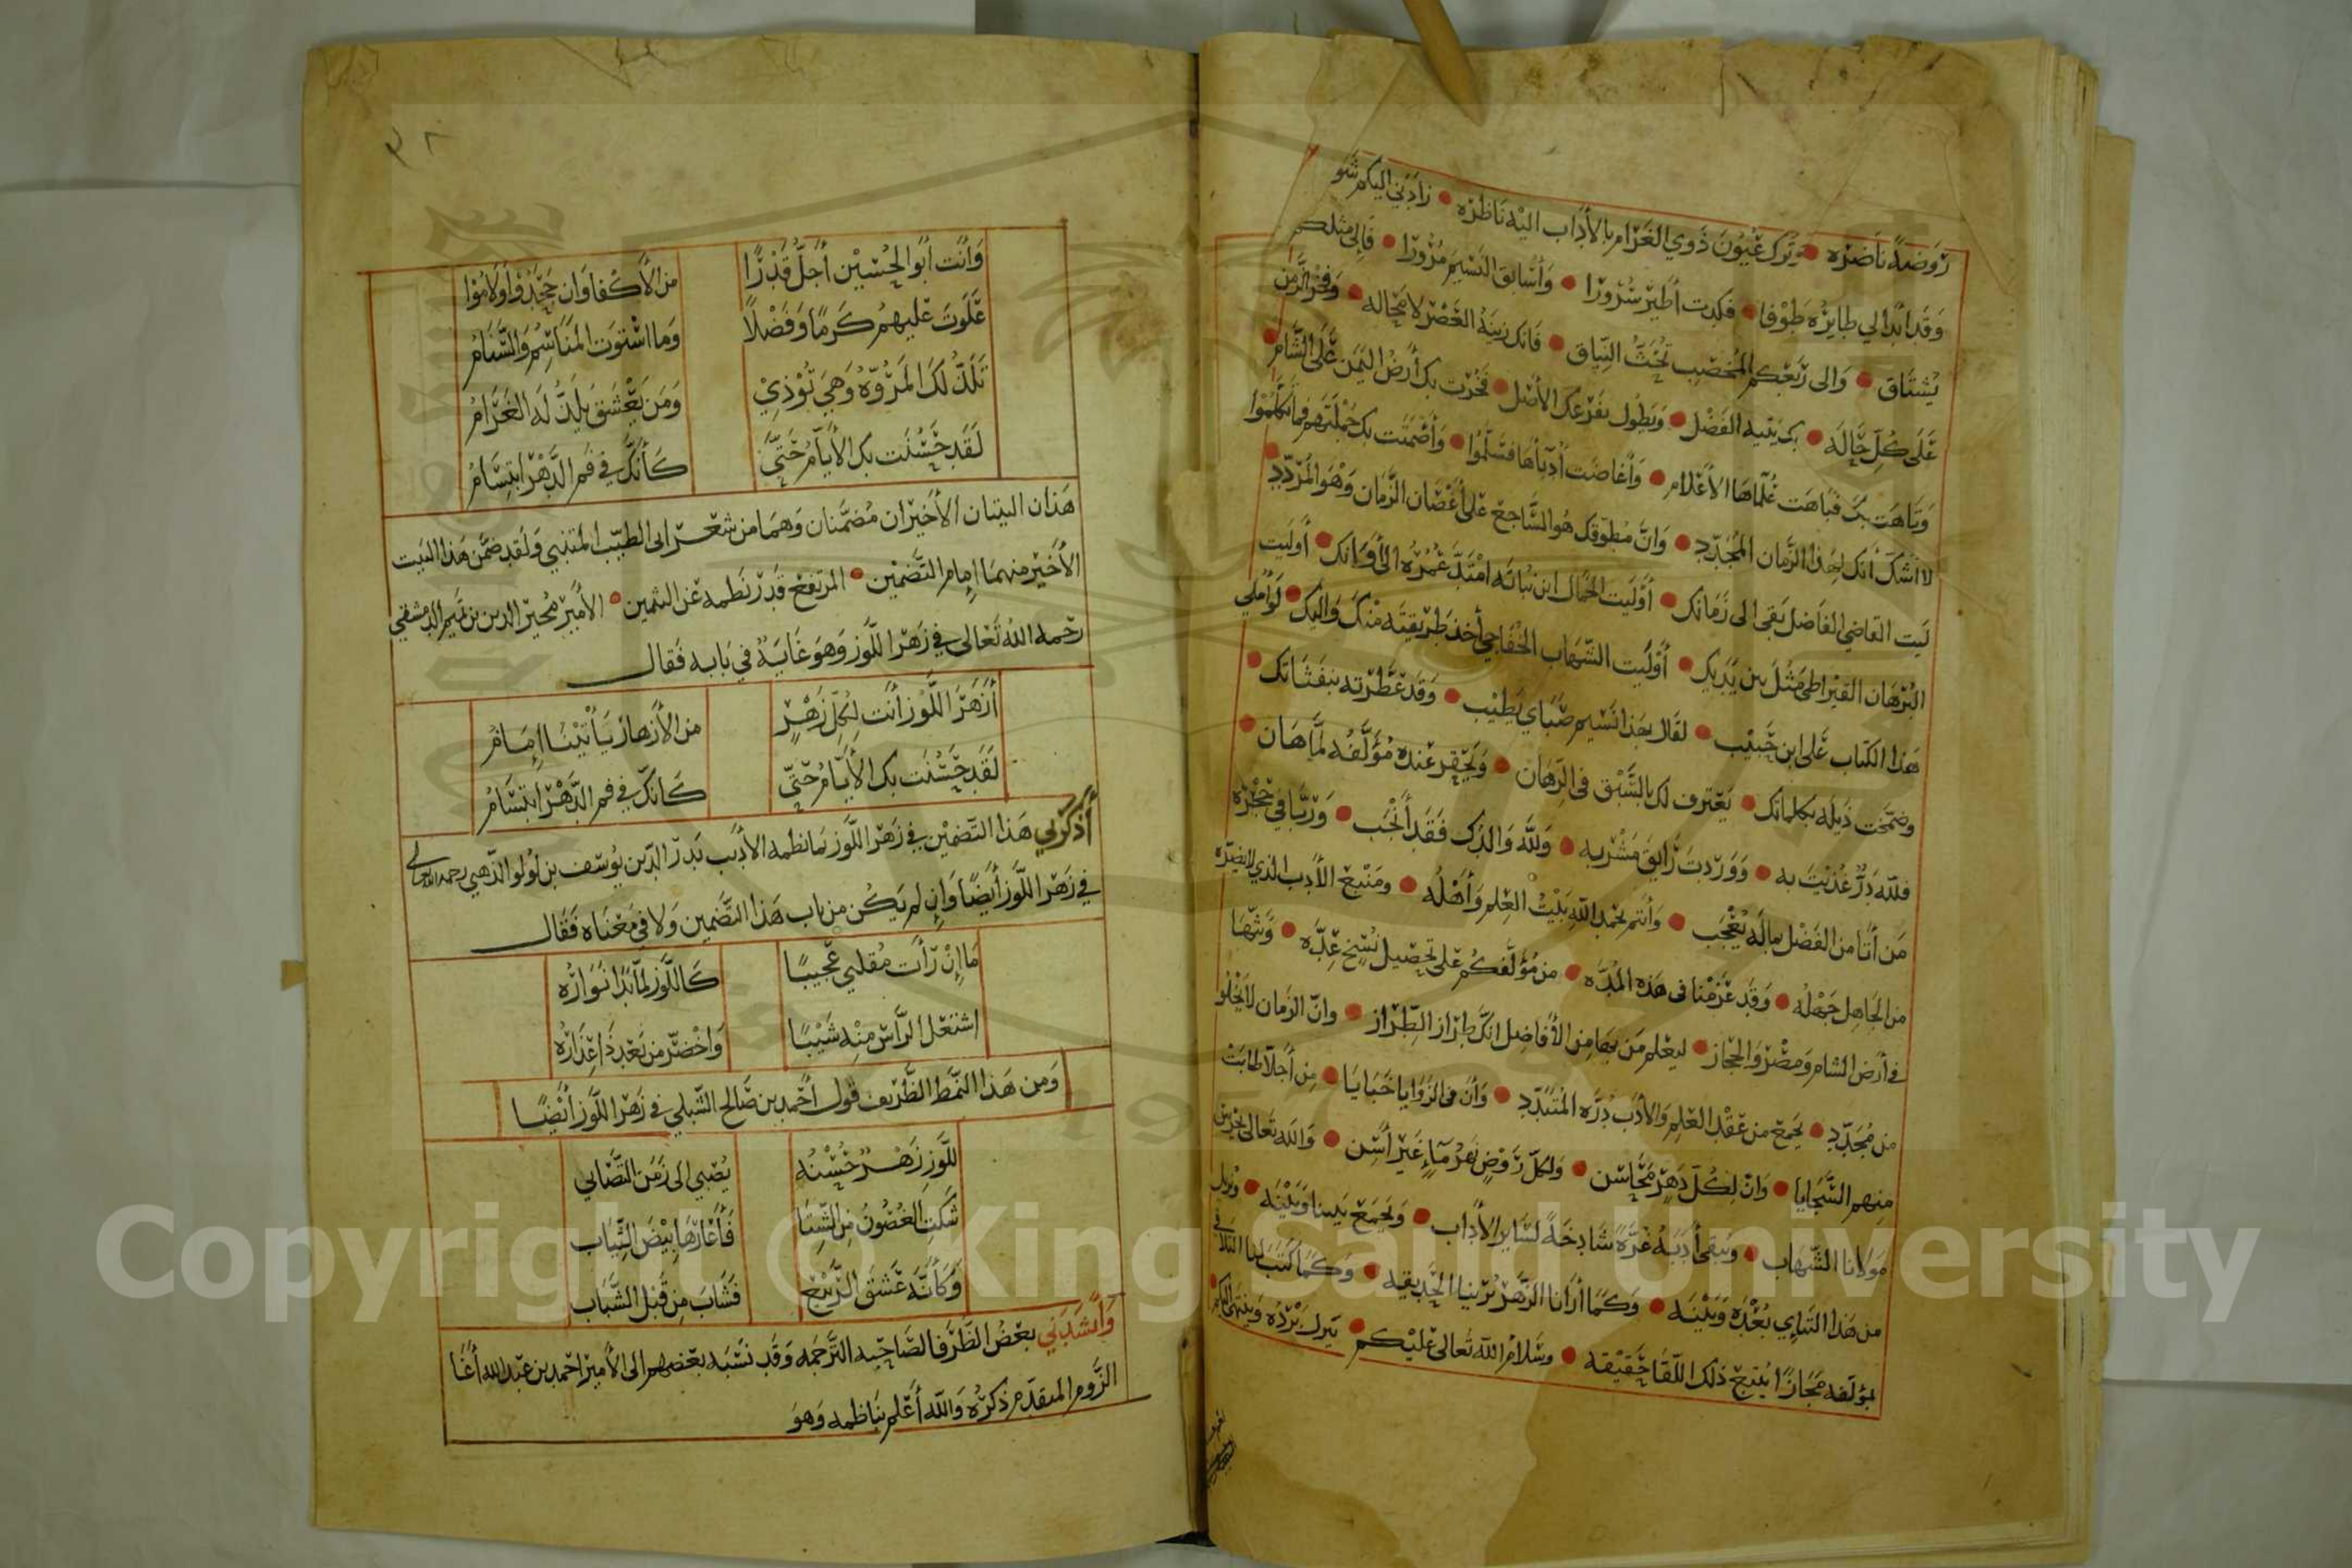 رَوضةً ناضره • وترك عيون ذوي الغرام بالآداب اليه ناظره • زادني اليكم شو
وقد أبدا لي طايره طوفا • فكدت أطير سرورا • وأسابق النسيم مرورا • فالى مثلكم
يشتاق • والى ربعكم المخصب تحث النياق • فانك زينة العصر لا محاله • وفخر الزمن
على كل حاله • بك يتيه الفضل • ويطول بفرعك الأصل • فخرت بك أرض اليمن على الشام
وتاهت بك فباهت علماها الأعلام • وأغاضت أدبأها فسلموا • وأصمتت بك جملتهم فما تكلموا
لا أشك أنك لهذا الزمان المجدد • وان مطوقك هو الساجع على أغصان الزمان وهو المردد
ليت القاضي الفاضل بقى الى زمانك • أوليت الجمال ابن نباته امتد عمره الى أوانك • أوليت
البرهان القيراطي مثل بين يديك • أوليت الشهاب الخفاجي أخذ طريقته منك واليك • لو أملي
هذا الكتاب على ابن حبيب • لقال بهذا نسيم صباي يطيب • وقد عطرته بنفثاتك
وضمخت ذيله بكلماتك • يعترف لك بالسبق في الرهان • ويحقر عنده مؤلفه لما هان
فلله در غذيت به • ووردت رايق مشربه • ولله والدك فقد أنجب • وربا في حجره
من أتا من الفضل بما له يعجب • وأنتم بحمد الله بيت العلم وأهله • ومنبع الأدب الذي لا يضره
من الجاهل جهله • وقد عزمنا في هذه المده • من مؤلفكم على تحصيل نسخ عده • وبثها
في أرض الشام ومصر والحجاز • ليعلم من بها من الأفاضل انك طراز الطراز • وان الزمان لا يخلو
من مجدد • يجمع من عقد العلم والأدب دره المتبدد • وأن في الزوايا خبايا • من أجلا طابت
منهم السجايا • وان لكل دهر محاسن • ولكل روض نهر ماء غير أسن • والله تعالى يحرس
مولانا الشهاب • ويبقى أدبه غرة شادخة لساير الأداب • ويجمع بيننا وبينه • ويزيل
من هذا التنائي بعده وبينه • وكما أرانا الزهر يزينا الحديقه • وكما كتب لنا التلاقي
بمؤلفه مجازا يتبع ذلك اللقا حقيقه • وسلام الله تعالى عليكم • يترك برده وينتهي اليكم
٣٢
وأنت أبو الحسين أجل قدرا من الأكفا وان جحدوا ولاموا
علوت عليهم كرما وفضلا وما استوت المناسم والسنام
تلذ لك المروه وهي توذي ومن يعشق يلذ له الغرام
لقد حسنت بك الأيام حتى كأنك في فم الدهر ابتسام
هذان البيتان الأخيران مضمنان وهما من شعر ابى الطيب المتنبي ولقد ضمن هذا البيت
الأخير منهما إمام التضمين • المرتفع قدر نظمه عن الثمين • الأمير مجير الدين بن تميم الدمشقي
رحمه الله تعالى في زهر اللوز وهو غاية في بابه فقال
أزهر اللوز أنت لكل زهر من الأزهار يأتينا إمام
لقد حسنت بك الأيام حتى كانك في فم الدهر ابتسام
أذكرني هذا التضمين في زهر اللوز ما نظمه الأديب بدر الدين يوسف بن لولو الذهبي رحمه الله تعالى
في زهر اللوز أيضا وان لم يكن من باب هذا التضمين ولا في معناه فقال
ما إن رأت مقلتي عجيبا كاللوز لما بدا نواره
اشتعل الرأس منه شيبا واخضر من بعد ذا عذاره
ومن هذا النمط الظريف قول أحمد بن صالح الشبلي في زهر اللوز أيضا
للوز زهر حسنه يصبي الى زمن التصابي
شكت الغصون من الشتا فأعارها بيض الثياب
وكأنه عشق الربيع فشاب من قبل الشباب
وأنشدني بعض الظرفا لصاحب الترجمه وقد نسبه بعضهم الى الأمير احمد بن عبد الله أغا
الزوم المتقدم ذكره والله أعلم بناظمه وهو
Copyright © King Saud University